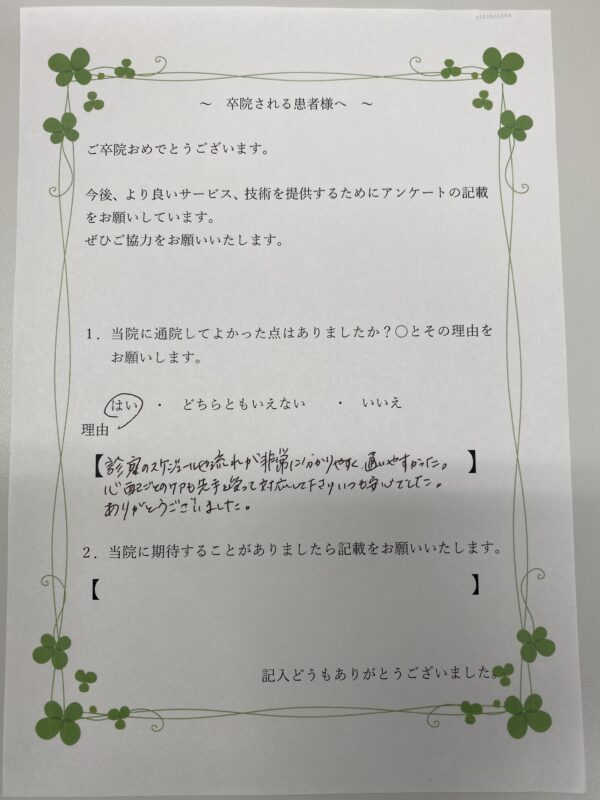 ～ 卒院される患者様へ ～
ご卒院おめでとうございます。
今後、より良いサービス、技術を提供するためにアンケートの記載
をお願いしています。
ぜひご協力をお願いいたします。
１．当院に通院してよかった点はありましたか？〇とその理由を
お願いします。
はい ・ どちらともいえない ・ いいえ
理由
【診察のスケジュールや流れが非常に分かりやすく、通いやすかった。】
心配ごとのケアも先手を打って対応して下さりいつも安心でした。
ありがとうございました。
２．当院に期待することがありましたら記載をお願いいたします。
【 】
記入どうもありがとうございました。